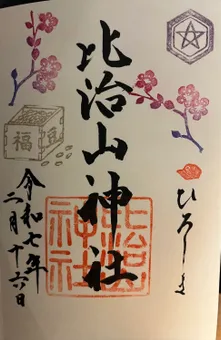 比治山神社
ひろしま
福豆
令和七年
二月十六日
比治山
神社